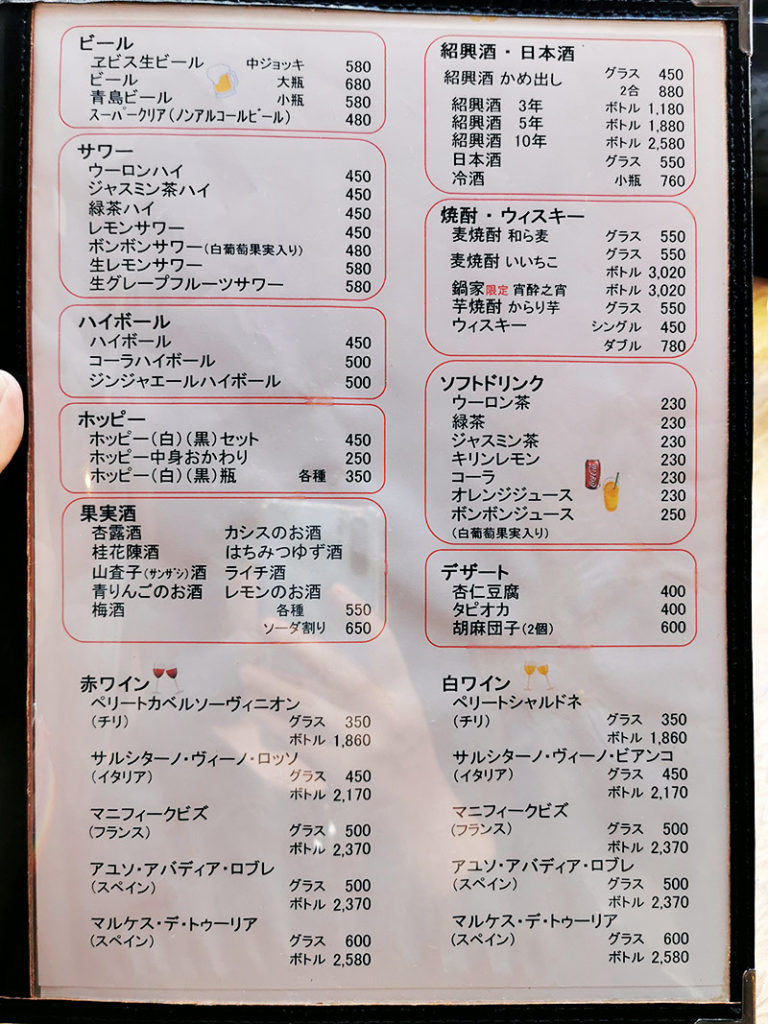 ビール
ヱビス生ビール 中ジョッキ 580
ビール 大瓶 680
青島ビール 小瓶 580
スーパークリア(ノンアルコールビール) 480
サワー
ウーロンハイ 450
ジャスミン茶ハイ 450
緑茶ハイ 450
レモンサワー 450
ボンボンサワー(白葡萄果実入り) 480
生レモンサワー 580
生グレープフルーツサワー 580
ハイボール
ハイボール 450
コーラハイボール 500
ジンジャエールハイボール 500
ホッピー
ホッピー(白)(黒)セット 450
ホッピー中身おかわり 250
ホッピー(白)(黒)瓶 各種 350
果実酒
杏露酒 カシスのお酒
桂花陳酒 はちみつゆず酒
山査子(サンザシ)酒 ライチ酒
青りんごのお酒 レモンのお酒
梅酒 各種 550
ソーダ割り 650
赤ワイン
ペリートカベルソーヴィニオン
(チリ) グラス 350
ボトル 1,860
サルシターノ・ヴィーノ・ロッソ
(イタリア) グラス 450
ボトル 2,170
マニフィークビズ
(フランス) グラス 500
ボトル 2,370
アユソ・アバディア・ロブレ
(スペイン) グラス 500
ボトル 2,370
マルケス・デ・トゥーリア
(スペイン) グラス 600
ボトル 2,580
紹興酒・日本酒
紹興酒 かめ出し グラス 450
2合 880
紹興酒 3年 ボトル 1,180
紹興酒 5年 ボトル 1,880
紹興酒 10年 ボトル 2,580
日本酒 グラス 550
冷酒 小瓶 760
焼酎・ウィスキー
麦焼酎 和ら麦 グラス 550
麦焼酎 いいちこ グラス 550
ボトル 3,020
鍋家限定 宵酔之宵 ボトル 3,020
芋焼酎 からり芋 グラス 550
ウィスキー シングル 450
ダブル 780
ソフトドリンク
ウーロン茶 230
緑茶 230
ジャスミン茶 230
キリンレモン 230
コーラ 230
オレンジジュース 230
ボンボンジュース 250
(白葡萄果実入り)
デザート
杏仁豆腐 400
タピオカ 400
胡麻団子(2個) 600
白ワイン
ペリートシャルドネ
(チリ) グラス 350
ボトル 1,860
サルシターノ・ヴィーノ・ビアンコ
(イタリア) グラス 450
ボトル 2,170
マニフィークビズ
(フランス) グラス 500
ボトル 2,370
アユソ・アバディア・ロブレ
(スペイン) グラス 500
ボトル 2,370
マルケス・デ・トゥーリア
(スペイン) グラス 600
ボトル 2,580